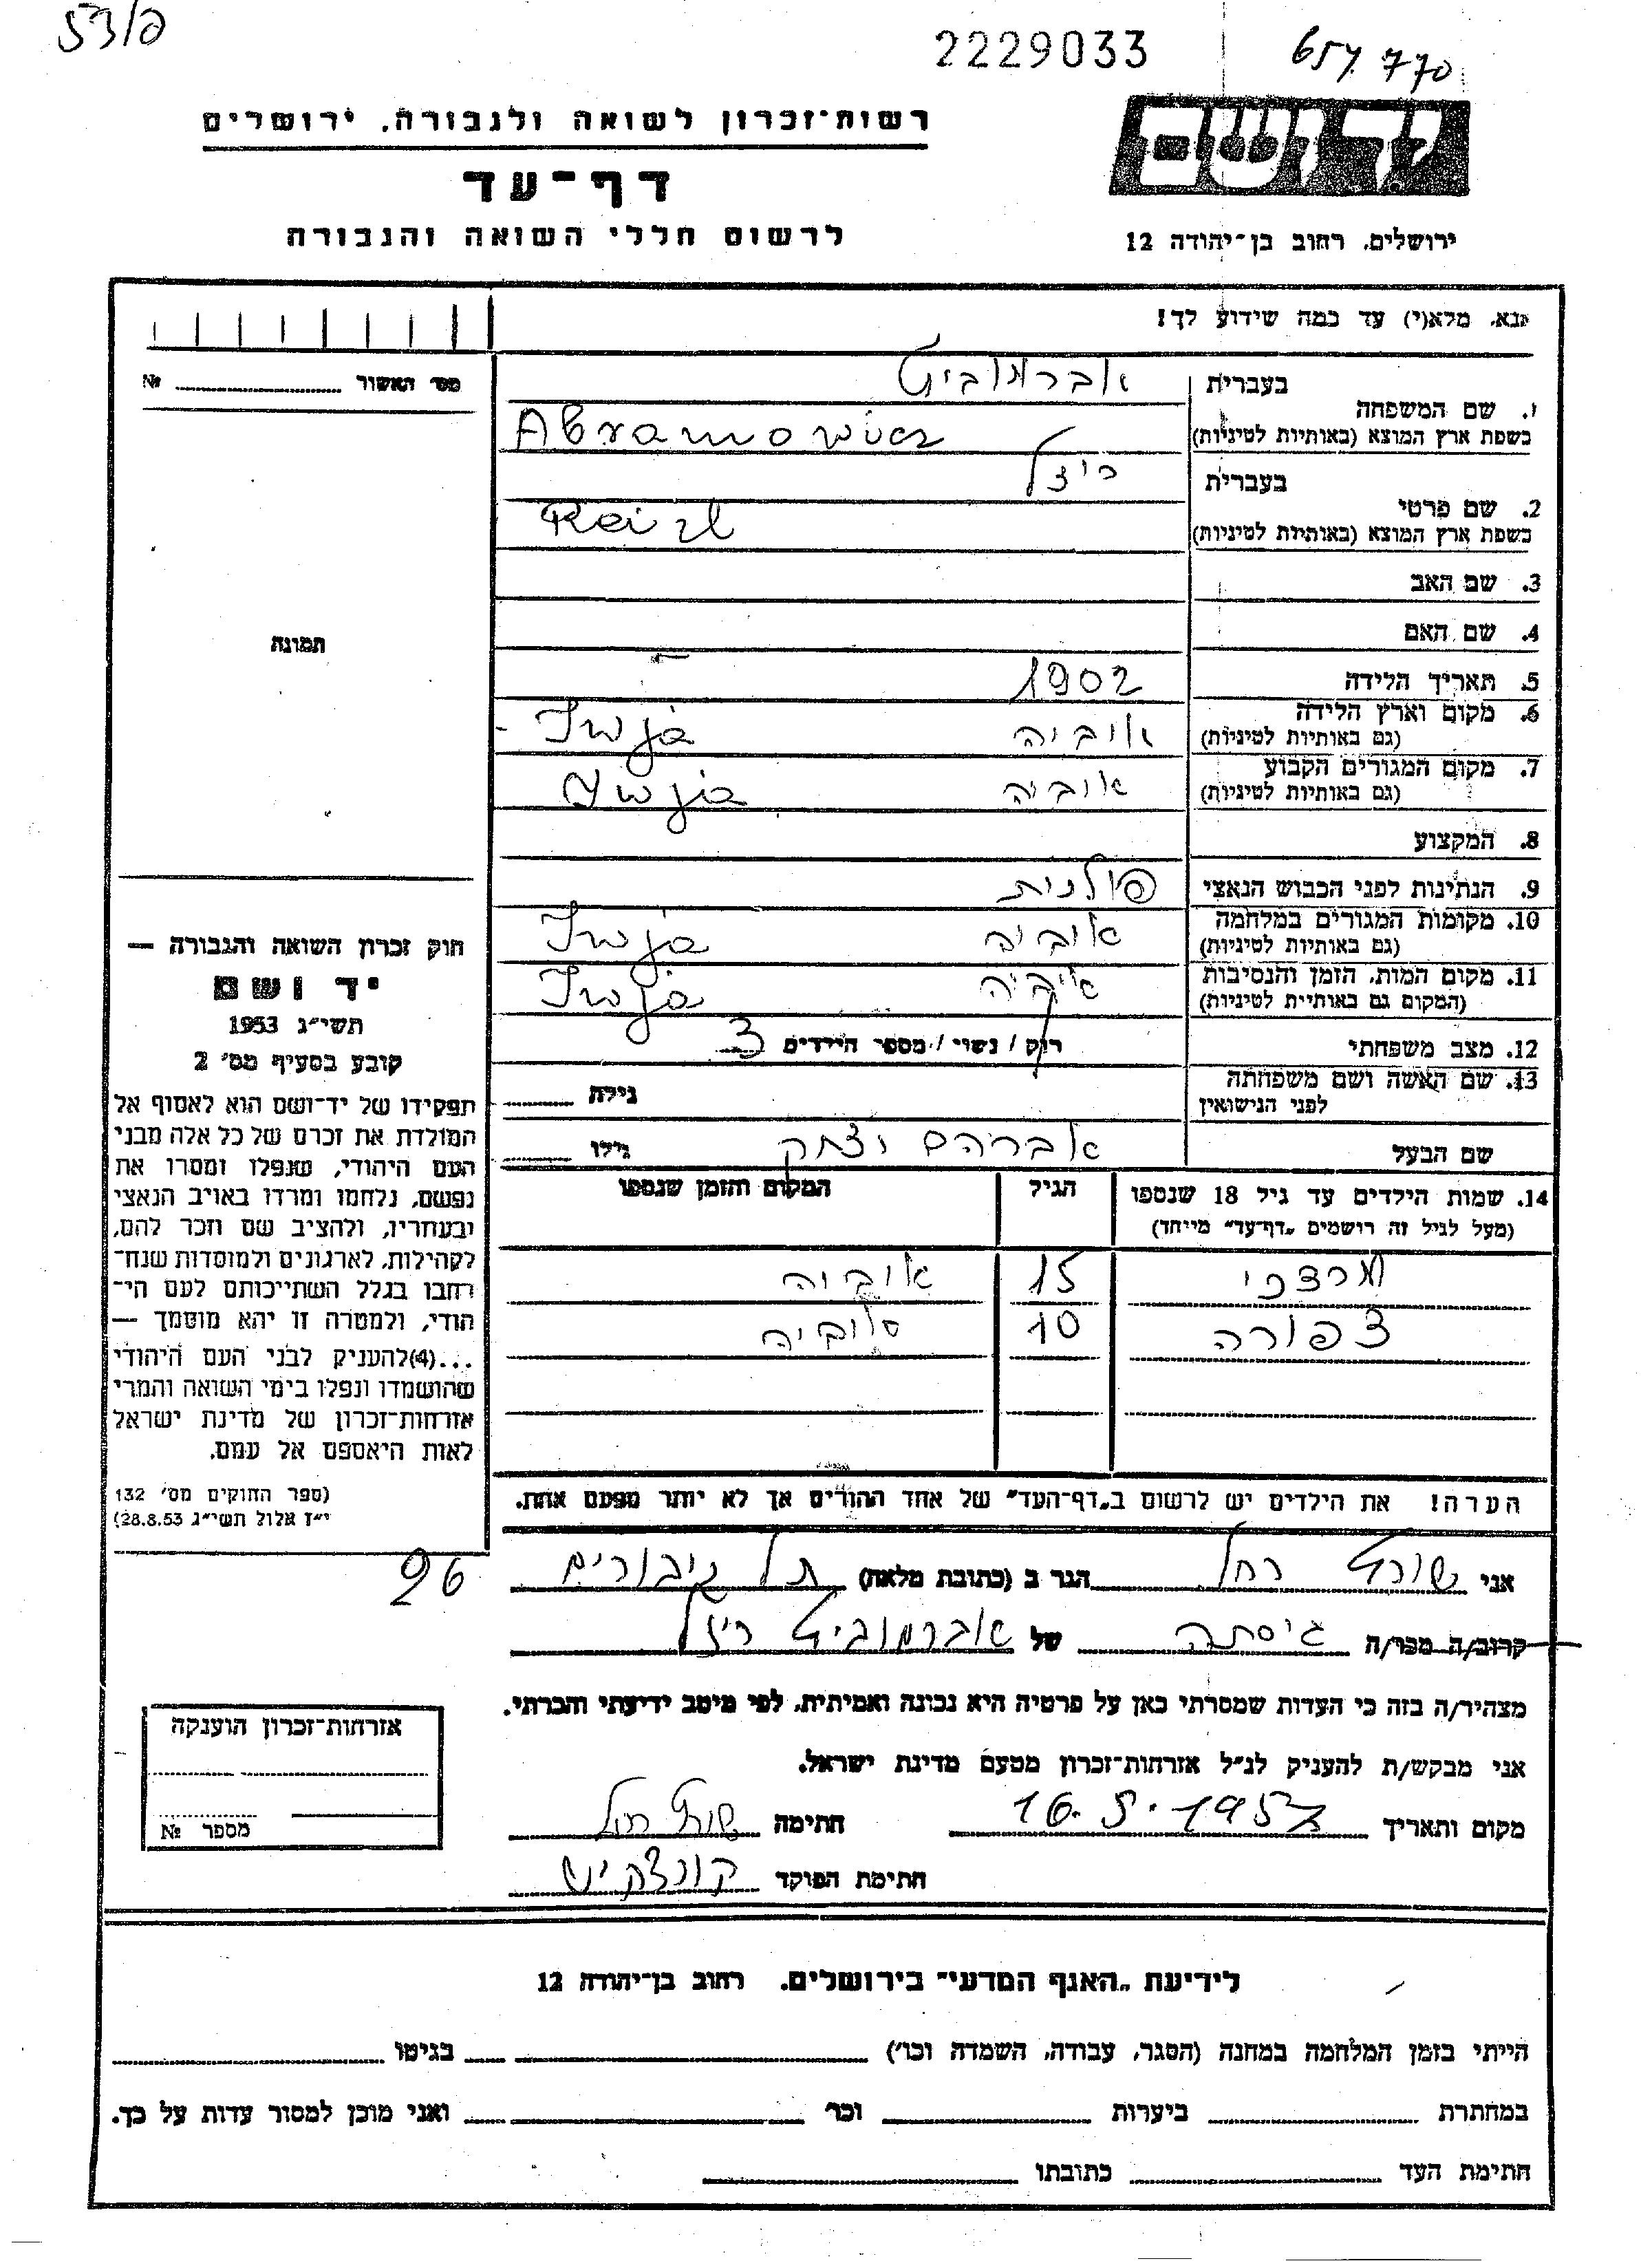 53/פ
2229033
654 770
רשות־זכרון לשואה ולגבורה, ירושלים
דף־עד
לרשום חללי השואה והגבורה
ירושלים, רחוב בן־יהודה 12
נא, מלא(י) עד כמה שידוע לך!
מס׳ האשור № 
בעברית אברמוביץ
1. שם המשפחה
בשפת ארץ המוצא (באותיות לטיניות) Abramowicz
בעברית ריזל
2. שם פרטי
בשפת ארץ המוצא (באותיות לטיניות) Reizl
3. שם האב
4. שם האם
תמונה
5. תאריך הלידה 1902
6. מקום וארץ הלידה
(גם באותיות לטיניות) אוביה Iwja
7. מקום המגורים הקבוע
(גם באותיות לטיניות) אוביה Iwja
8. המקצוע
9. הנתינות לפני הכבוש הנאצי פולנית
10. מקומות המגורים במלחמה
(גם באותיות לטיניות) אוביה Iwja
11. מקום המות, הזמן והנסיבות
(המקום גם באותיות לטיניות) אוביה Iwja
12. מצב משפחתי רוק / נשוי / מספר הילדים 3
13. שם האשה ושם משפחתה
לפני הנישואין גילה
שם הבעל אברהם יצחק גילו
14. שמות הילדים עד גיל 18 שנספו
(מעל לגיל זה רושמים „דף־עד״ מיוחד)
הגיל
המקום והזמן שנספו
מרדכי 15 אוביה
צפורה 10 אוביה
הערה! את הילדים יש לרשום ב„דף־העד״ של אחד ההורים אך לא יותר מפעם אחת.
חוק זכרון השואה והגבורה —
יד ושם
תשי״ג 1953
קובע בסעיף מס׳ 2
תפקידו של יד־ושם הוא לאסוף אל
המולדת את זכרם של כל אלה מבני
העם היהודי, שנפלו ומסרו את
נפשם, נלחמו ומרדו באויב הנאצי
ובעוזריו, ולהציב שם וזכר להם,
לקהילות, לארגונים ולמוסדות שנח־
רבו בגלל השתייכותם לעם הי־
הודי, ולמטרה זו יהא מוסמך —
...(4)להעניק לבני העם היהודי
שהושמדו ונפלו בימי השואה והמרי
אזרחות־זכרון של מדינת ישראל
לאות היאספם אל עמם.
(ספר החוקים מס׳ 132
י״ז אלול תשי״ג 28.8.53)
אני שורץ רחל הגר ב (כתובת מלאה) תל גיבורים 96
קרוב/ה מכר/ה גיסתה של אברמוביץ ריזל
מצהיר/ה בזה כי העדות שמסרתי כאן על פרטיה היא נכונה ואמיתית, לפי מיטב ידיעתי והכרתי.
אני מבקש/ת להעניק לנ״ל אזרחות־זכרון מטעם מדינת ישראל.
מקום ותאריך 16.5.1957 חתימה שורץ רחל
חתימת הפוקד
אזרחות־זכרון הוענקה
מספר №
לידיעת „האגף המדעי״ בירושלים, רחוב בן־יהודה 12
הייתי בזמן המלחמה במחנה (הסגר, עבודה, השמדה וכו׳) בגיטו
במחתרת ביערות וכו׳ ואני מוכן למסור עדות על כך.
חתימת העד כתובתו